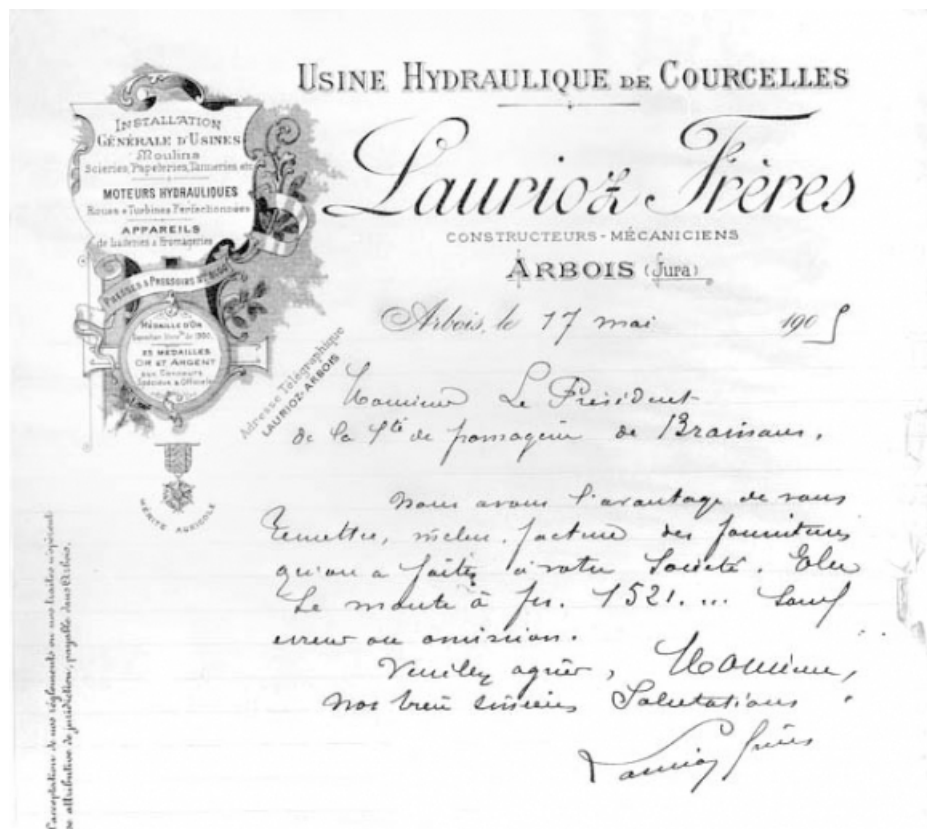 USINE HYDRAULIQUE DE COURCELLES
Laurioz Frères
CONSTRUCTEURS-MÉCANICIENS
ARBOIS (Jura)
INSTALLATION
GÉNÉRALE D'USINES
Moulins
Scieries, Papeteries, Tanneries etc
MOTEURS HYDRAULIQUES
Roues & Turbines Perfectionnées
APPAREILS
de Laiteries & Fromageries
PRESSES & PRESSOIRS
MÉDAILLE D'OR
de 1900
25 MÉDAILLES
OR ET ARGENT
aux Concours
Spéciaux & Officiels
MÉRITE AGRICOLE
Adresse Télégraphique
LAURIOZ-ARBOIS
Arbois, le 17 mai 1905
Monsieur Le Président
de la Sté de fromagerie de Brainans.
Nous avons l'avantage de vous
remettre, inclus, facture des fournitures
qu'on a faites à votre Société. Elle
se monte à frs. 1521. ... Sauf
erreur ou omission.
Veuillez agréer, Monsieur,
nos bien sincères Salutations.
Laurioz frères
l'acceptation de nos règlements ou nos traites n'opérant
attributive de juridiction, payable dans Arbois.